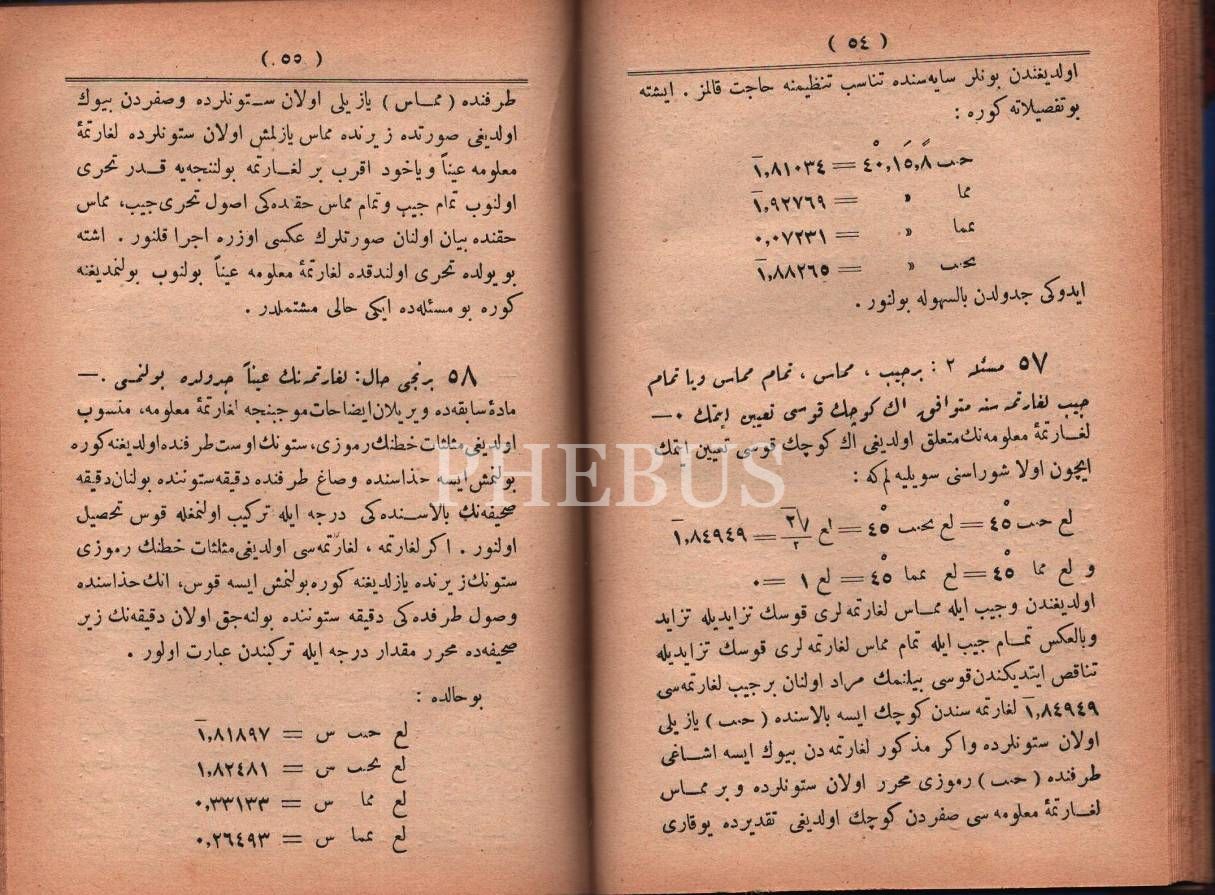 ( ٥٤ )
اولديغندن بونلر سايه‌سنده تناسب تنظيمنه حاجت قالمز . ايشته
بوتفصيلاته كوره :
حب ٤٠°,١٥′,٨″ = ١̅,٨١٠٣٤
مما » = ١̅,٩٢٧٦٩
تمما » = ٠,٠٧٢٣١
تجب » = ١̅,٨٨٢٦٥
ايدوكى جدولدن بالسهوله بولنور .
٥٧ مسئله ٢ : برجيب ، مماس ، تمام مماس ويا تمام
جيب لغارتمه سنه متوافق اك كوچك قوسى تعيين ايتمك .—
لغارتمۀ معلومه‌نك متعلق اولديغى اك كوچك قوسى تعيين ايتمك
ايچون اولا شوراسنى سويليه لم‌كه :
لع حب ٤٥° = لع تجب ٤٥° = لع √٢/٢ = ١̅,٨٤٩٤٩
و لع مما ٤٥° = لع تمما ٤٥° = لع ١ = ٠
اولديغندن وجيب ايله مماس لغارتمه لرى قوسك تزايديله تزايد
وبالعكس تمام جيب ايله تمام مماس لغارتمه لرى قوسك تزايديله
تناقص ايتديكندن قوسى بيلنمك مراد اولنان برجيب لغارتمه‌سى
١̅,٨٤٩٤٩ لغارتمه سندن كوچك ايسه بالاسنده ( حب ) يازيلى
اولان ستونلرده واكر مذكور لغارتمه‌دن بيوك ايسه اشاغى
طرفنده ( حب ) رموزى محرر اولان ستونلرده و بر مماس
لغارتمۀ معلومه سى صفردن كوچك اولديغى تقديرده يوقارى
( ٥٥ )
طرفنده ( مماس ) يازيلى اولان ستونلرده وصفردن بيوك
اولديغى صورتده زيرنده مماس يازلمش اولان ستونلرده لغارتمۀ
معلومه عيناً وياخود اقرب بر لغارتمه بولنجه‌يه قدر تحرى
اولنوب تمام جيب وتمام مماس حقنده‌كى اصول تحرى جيب، مماس
حقنده بيان اولنان صورتلرك عكسى اوزره اجرا قلنور . اشته
بو يولده تحرى اولندقده لغارتمۀ معلومه عيناً بولنوب بولنمديغنه
كوره بو مسئله‌ده ايكى حالى مشتملدر .
٥٨ برنجى حال : لغارتمه‌نك عيناً جدولده بولنمسى .—
مادۀ سابقه‌ده ويريلان ايضاحات موجبنجه لغارتمۀ معلومه، منسوب
اولديغى مثلثات خطنك رموزى، ستونك اوست طرفنده اولديغنه كوره
بولنمش ايسه حذاسنده وصاغ طرفنده دقيقه ستوننده بولنان دقيقه
صحيفه‌نك بالاسنده‌كى درجه ايله تركيب اولنمغله قوس تحصيل
اولنور . اكر لغارتمه ، لغارتمه‌سى اولديغى مثلثات خطنك رموزى
ستونك زيرنده يازلديغنه كوره بولنمش ايسه قوس، انك حذاسنده
وصول طرفده‌كى دقيقه ستوننده بولنه‌جق اولان دقيقه‌نك زير
صحيفه‌ده محرر مقدار درجه ايله تركبندن عبارت اولور .
بوحالده :
لع حب س = ١̅,٨١٨٩٧
لع تجب س = ١̅,٨٢٤٨١
لع مما س = ٠,٣٣١٣٣
لع تمما س = ٠,٢٦٤٩٣
PHEBUS